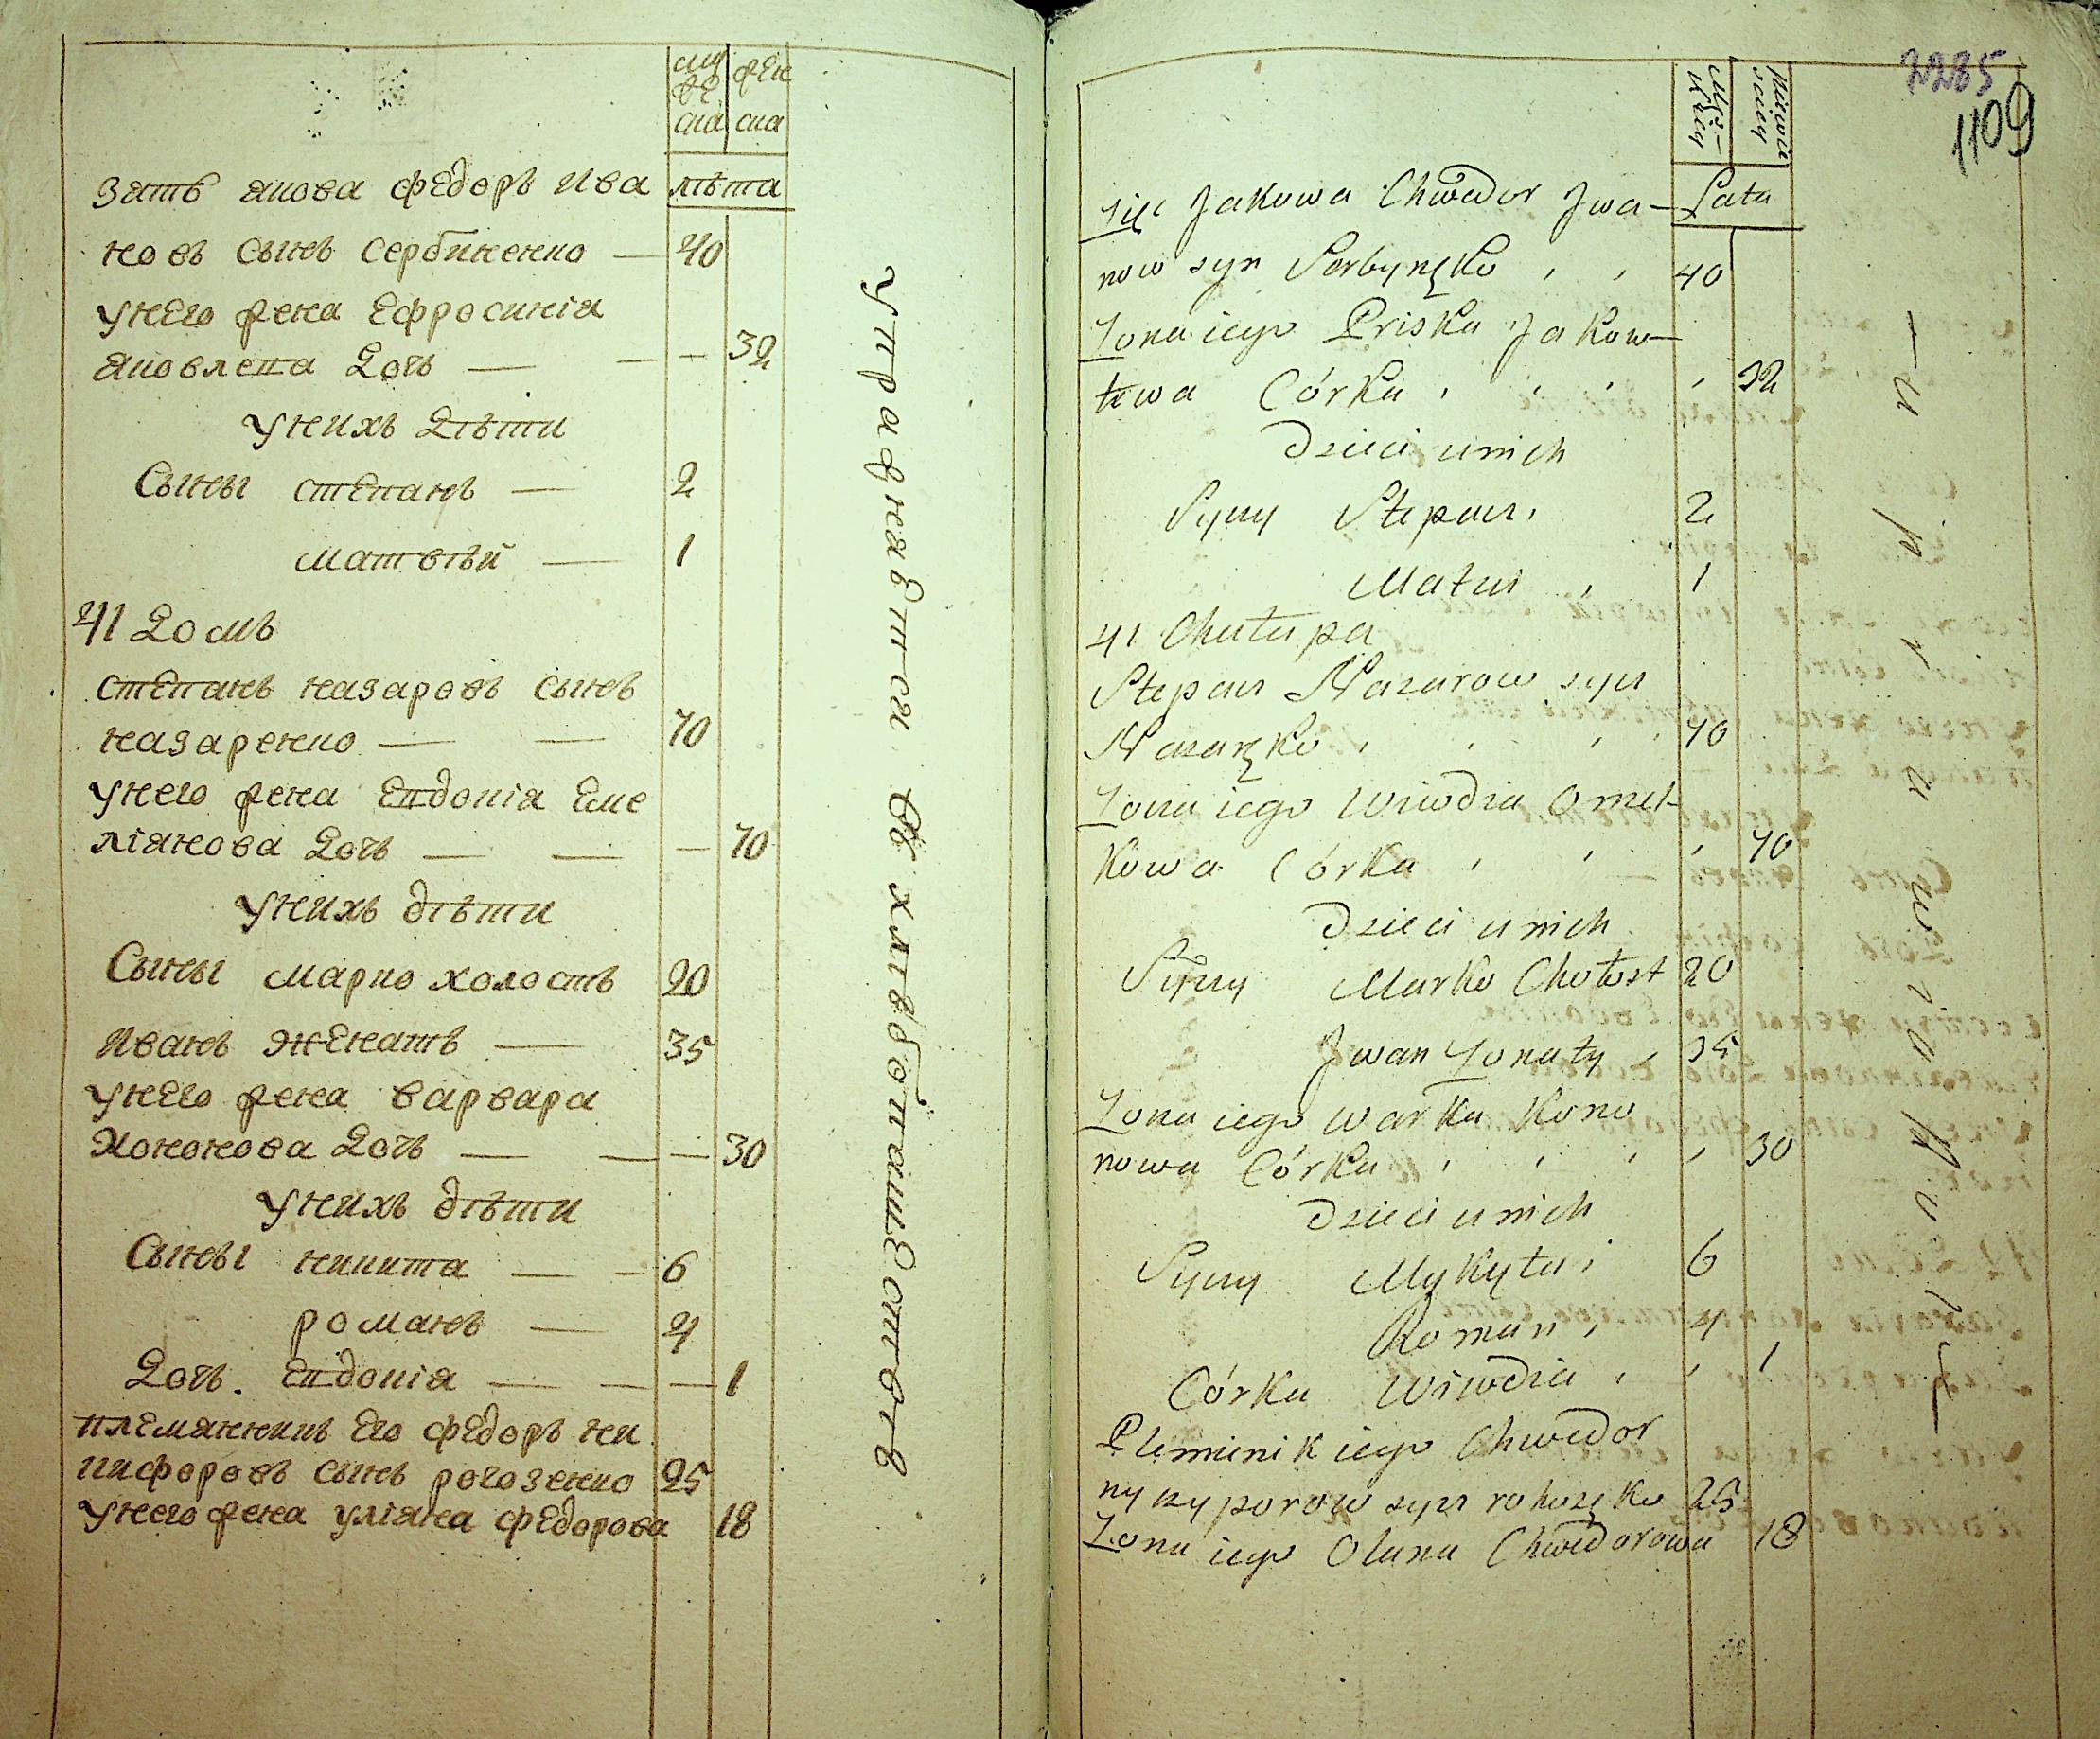 муже
ска
жен
ска
зять якова федоръ ива
лѣта
новъ сынъ сербиненко — 40
унего жена ефросинїя
яковлева дочь — — — 32
унихъ дѣти
Сыны степанъ — 2
матвѣй — 1
41 домъ
степанъ назаровъ сынъ
назаренко — — 70
унего жена евдокїя еме
лїянова дочь — — — 70
унихъ дѣти
Сыны марко холостъ 20
иванъ женатъ — 35
унего жена варвара
кононова дочь — — — 30
унихъ дѣти
Сыны никита — — 6
романъ — 4
дочь. евдокїя — — — 1
племянникъ его федоръ ни
кифоровъ сынъ рогозенко 25
унего жена улїяна федорова 18
упражняется въ хлѣбопашествѣ
2285
1109
Męz-
kiey
Niewie
sciey
Zięć Jakowa Chwedor Jwa-
Lata
now syn Serbynęko 40
Zona iego Priska Jakow-
lewa Córka 32
Dzieci u nich
Syny Stepan 2
Matwi 1
41 Chałupa
Stepan Nazarow syn
Nazaręko 70
Zona iego Wiwdia Omel-
kowa Córka 70
Dzieci u nich
Syny Marko Chołost 20
Jwan Zonaty 35
Zona iego Warka Kono
nowa Córka 30
Dzieci u nich
Syny Mykyta 6
Roman 4
Córka Wiwdia 1
Plemienik iego Chwedor
nykyporow syn rohozęko 25
Zona iego Olana Chwedorowa 18